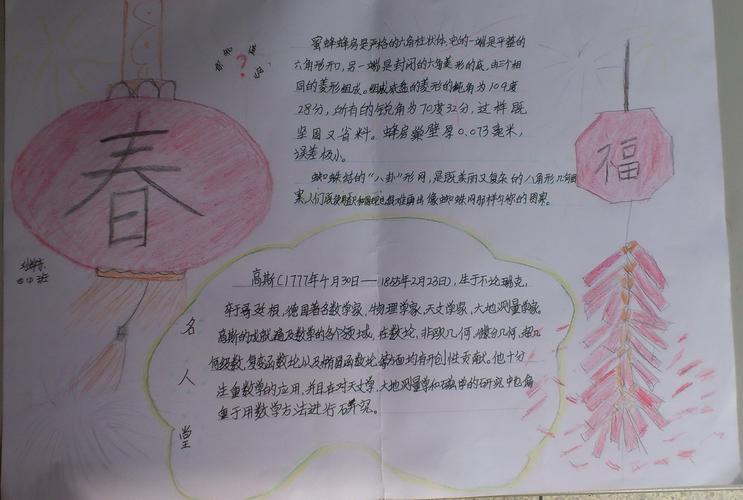 春
福
你知道吗
?
蜜蜂蜂房是严格的六角柱状体，它的一端是平整的
六角形开口，另一端是封闭的六角菱形的底，由三个相
同的菱形组成。组成底盘的菱形的钝角为109度
28分，所有的锐角为70度32分，这样既
坚固又省料。蜂房巢壁厚0.073毫米，
误差极小。
蜘蛛结的“八卦”形网，是既美丽又复杂的八角形几何图
案，人们即使用直尺和圆规也很难画出像蜘蛛网那样匀称的图案。
四(2)班
名人堂
高斯(1777年4月30日——1855年2月23日)，生于不伦瑞克，
卒于哥廷根，德国著名数学家、物理学家、天文学家、大地测量学家。
高斯的成就遍及数学的各个领域，在数论、非欧几何、微分几何、超几
何级数、复变函数论以及椭圆函数论等方面均有开创性贡献。他十分
注重数学的应用，并且在对天文学、大地测量学和磁学的研究中也偏
重于用数学方法进行研究。